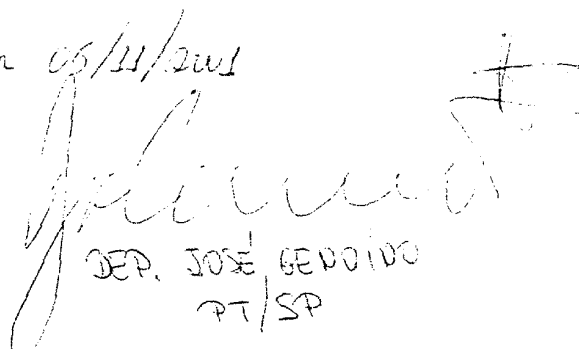 05/11/2001
DEP. JOSÉ GENOÍNO
PT/SP